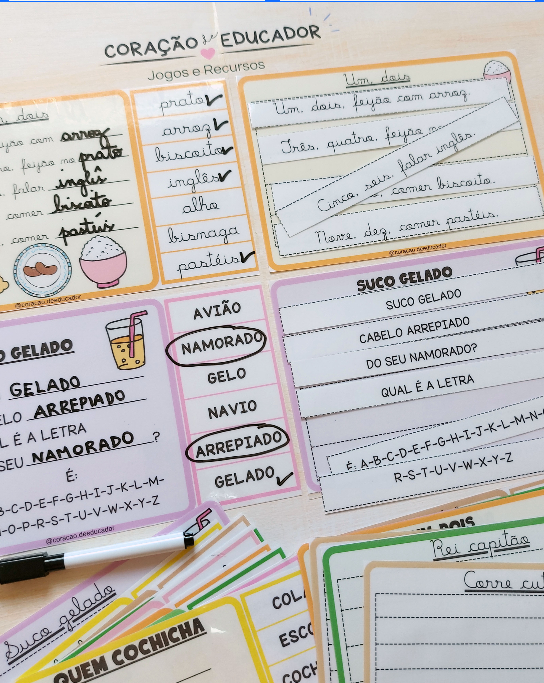 CORAÇÃO de EDUCADOR
Jogos e Recursos
dois
com arroz
feijão no prato
falar inglês
comer biscoito
comer pastéis
@coracao.deeducador
prato
arroz
biscoito
inglês
alho
bisnaga
pastéis
Um, dois
Um, dois, feijão com arroz.
Três, quatro, feijão no
Cinco, seis, falar inglês.
comer biscoito.
Nove, dez, comer pastéis.
@coracao.deeducador
O GELADO
GELADO
ELO ARREPIADO
AL É A LETRA
SEU NAMORADO ?
É:
B-C-D-E-F-G-H-I-J-K-L-M-
N-O-P-R-S-T-U-V-W-X-Y-Z
@coracao.deeducador
AVIÃO
NAMORADO
GELO
NAVIO
ARREPIADO
GELADO
SUCO GELADO
SUCO GELADO
CABELO ARREPIADO
DO SEU NAMORADO?
QUAL É A LETRA
É: A-B-C-D-E-F-G-H-I-J-K-L-M-N-
R-S-T-U-V-W-X-Y-Z
Suco gelado
QUEM COCHICHA
COLA
ESCO
COCH
DOIS
Rei capitão
Corre cu